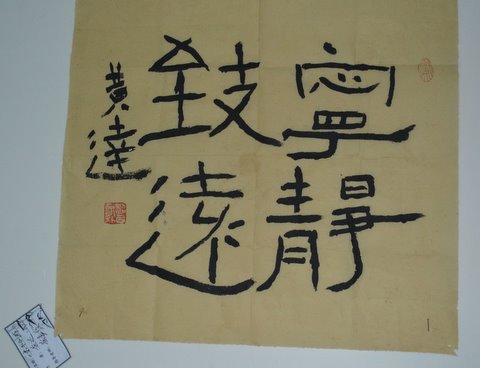 寧靜
致遠
黃達